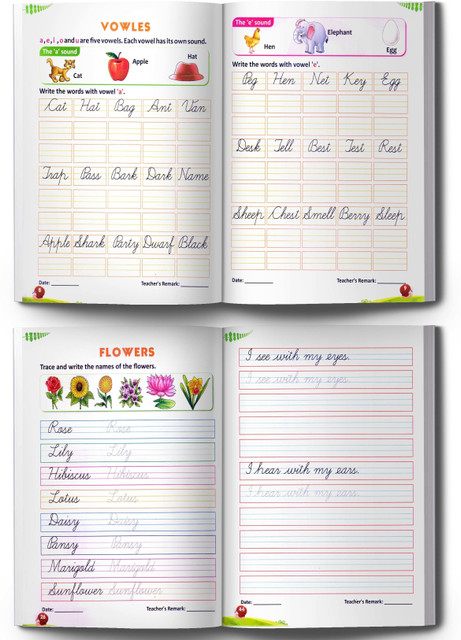 VOWLES
a, e, i , o and u are five vowels. Each vowel has its own sound.
The 'a' sound
Cat
Apple
Hat
Write the words with vowel 'a'.
Cat Hat Bag Ant Van
Trap Pass Bark Dark Name
Apple Shark Party Dwarf Black
Date: Teacher's Remark:
The 'e' sound
Hen
Elephant
Egg
Write the words with vowel 'e'.
Peg Hen Net Key Egg
Desk Tell Best Test Rest
Sheep Chest Smell Berry Sleep
Date: Teacher's Remark:
FLOWERS
Trace and write the names of the flowers.
Rose Rose
Lily Lily
Hibiscus Hibiscus
Lotus Lotus
Daisy Daisy
Pansy Pansy
Marigold Marigold
Sunflower Sunflower
Date: Teacher's Remark:
I see with my eyes.
I see with my eyes.
I hear with my ears.
I hear with my ears.
Date: Teacher's Remark:
44